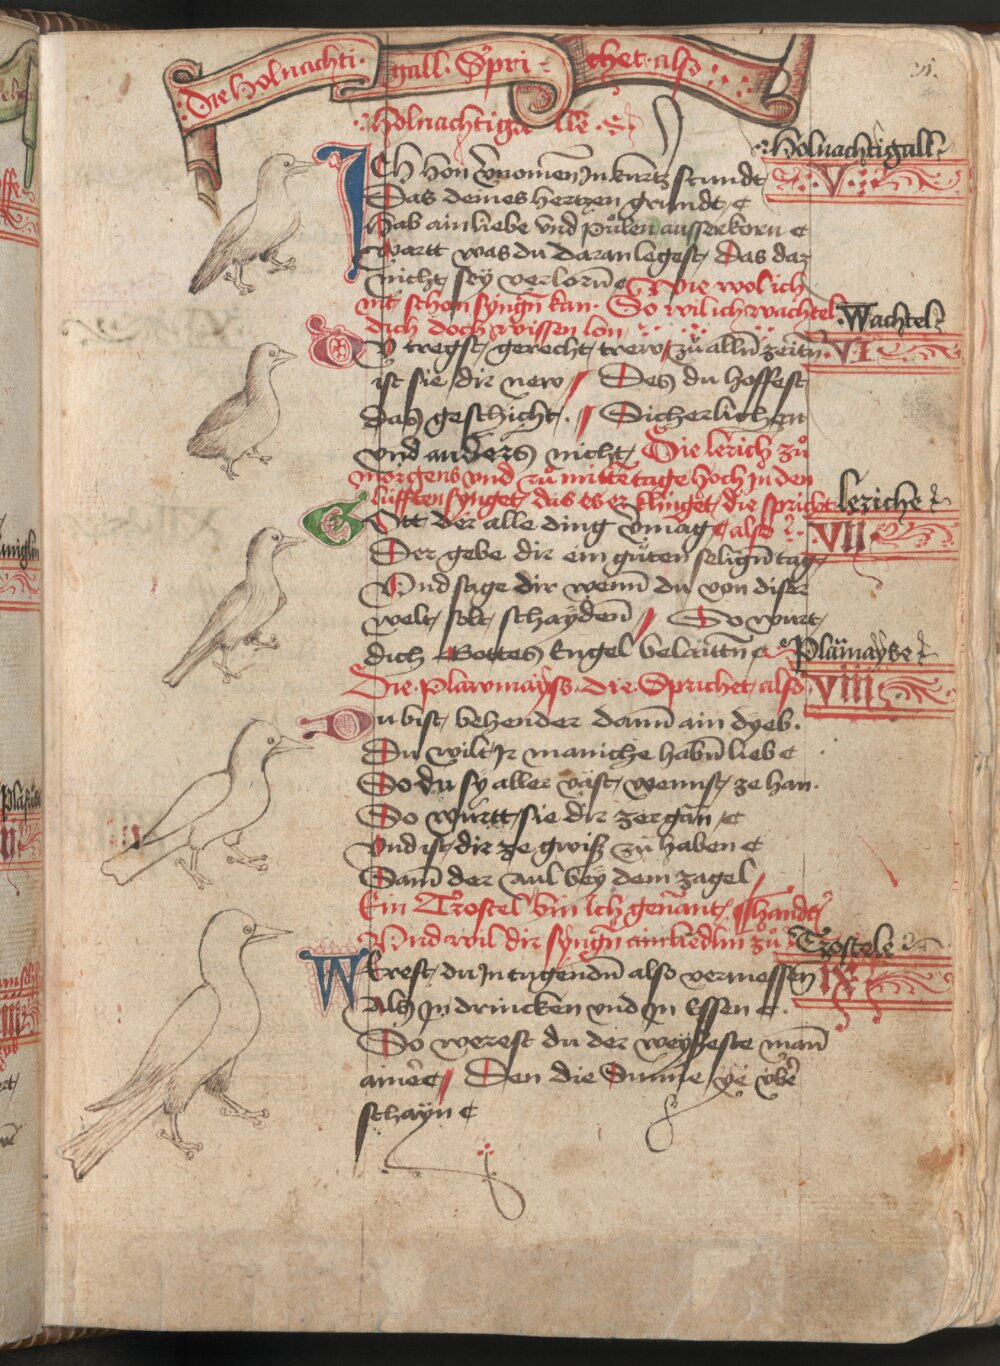 Die Holnachti gall Spri chet also
Holnachtiga lle
Holnachtigall
V
ICh hon vernomen In kurtz stundt
Das deines hertzen grundt
Hab ain liebe vnd půlen ausserkorn
wartt was du daran legest Das dar
nicht sey verlorn̄ Wie wol ich
nit schon syngn̄ kan So wil ich wachtel
dich doch wissen lon
Wachtel
VI
DV tregst gerecht trew zů alln̄ zeitn̄
ist sie dir new Des du hoffest
das geschicht Sicherlichen
vnd anders nicht Die lerich zů
morgens vnd zů mittetage hoch In den
lüfften synget das es er klinget die spricht
leriche
VII
GOtt der alle ding vmag also
Der gebe dir ein gůten selign̄ tag
Vnd sage dir wenn̄ du von diser
welt solt schayden̄ So wurt
dich Gottes Engel belaittn̄
Plämayse
Die Plawmayss die Sprichet also
VIII
Du bist behender dann̄ ain dyeb
Du wilt Ir maniche habn̄ lieb
So du sy aller väst wennst ze han
So wurtt sie dir zergan
vnd ist dir ze gwiß zů haben
Dann̄ der aul bey dem zagel
Ein Trostel bin Ich genant zhandt
Vnd wil dir syngn̄ ain liedlin zů
Trostele
IX
WErest du In tugendn̄ also vermessen
Als In drincken vnd In Essen
So werest du der weyseste man̄
ainer Den die Sunne ye vber
schayn